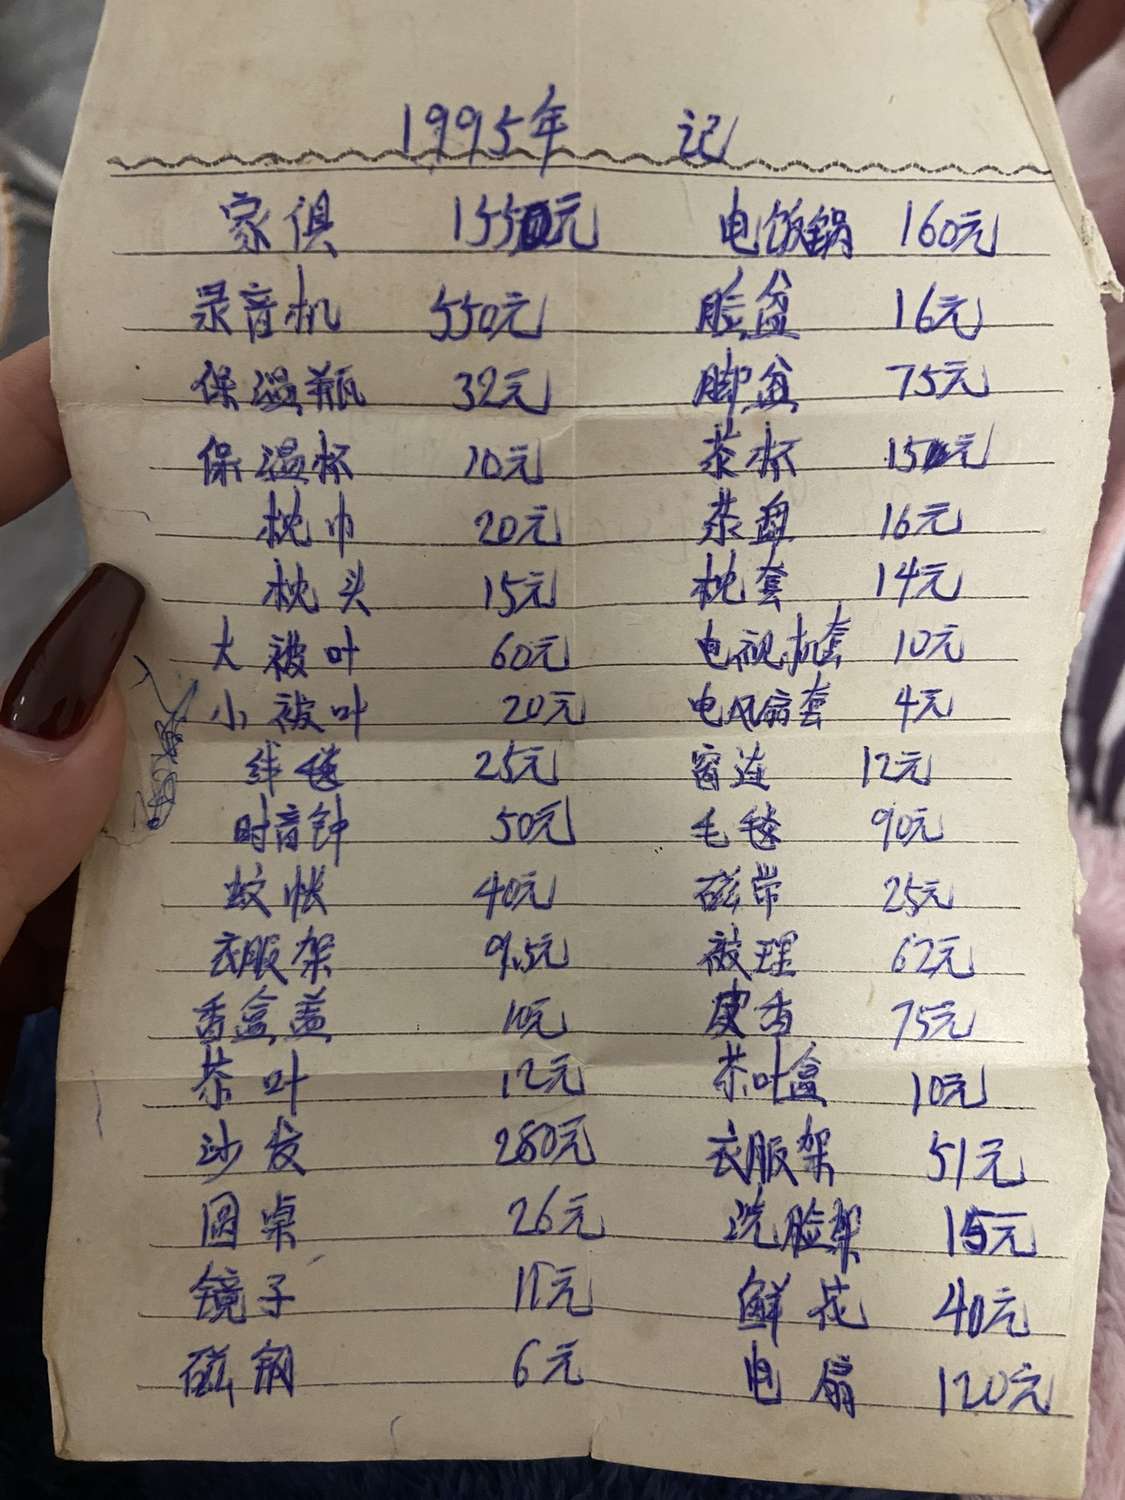 1995年 记
家俱 1550元 电饭锅 160元
录音机 550元 脸盆 16元
保温瓶 32元 脚盆 75元
保温杯 10元 茶杯 15元
枕巾 20元 茶盘 16元
枕头 15元 枕套 14元
大被叶 60元 电视机套 10元
小被叶 20元 电风扇套 4元
线毯 25元 窗连 12元
时音钟 50元 毛毯 90元
蚊帐 40元 磁带 25元
衣服架 9.5元 被理 62元
香盒盖 10元 皮香 75元
茶叶 12元 茶叶盒 10元
沙发 280元 衣服架 51元
圆桌 26元 洗脸架 15元
镜子 11元 鲜花 40元
磁钢 6元 电扇 120元